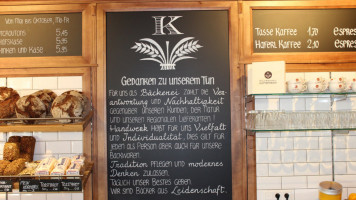 Von Mai bis Oktober, Mo-Fr
5,95
5,45
und Käse 5,45
K
Gedanken zu unserem Tun
Für uns als Bäckerei zählt die Ver-
antwortung und Nachhaltigkeit
gegenüber unseren Kunden, der Natur
und unseren regionalen Lieferanten!
Handwerk heißt für uns Vielfalt
und Individualität. Dies gilt für
jeden als Person aber auch für unsere
Backwaren.
Tradition pflegen und modernes
Denken zulassen.
Täglich unser Bestes geben.
Wir sind Bäcker aus Leidenschaft.
Tasse Kaffee 1,70
Haferl Kaffee 2,90